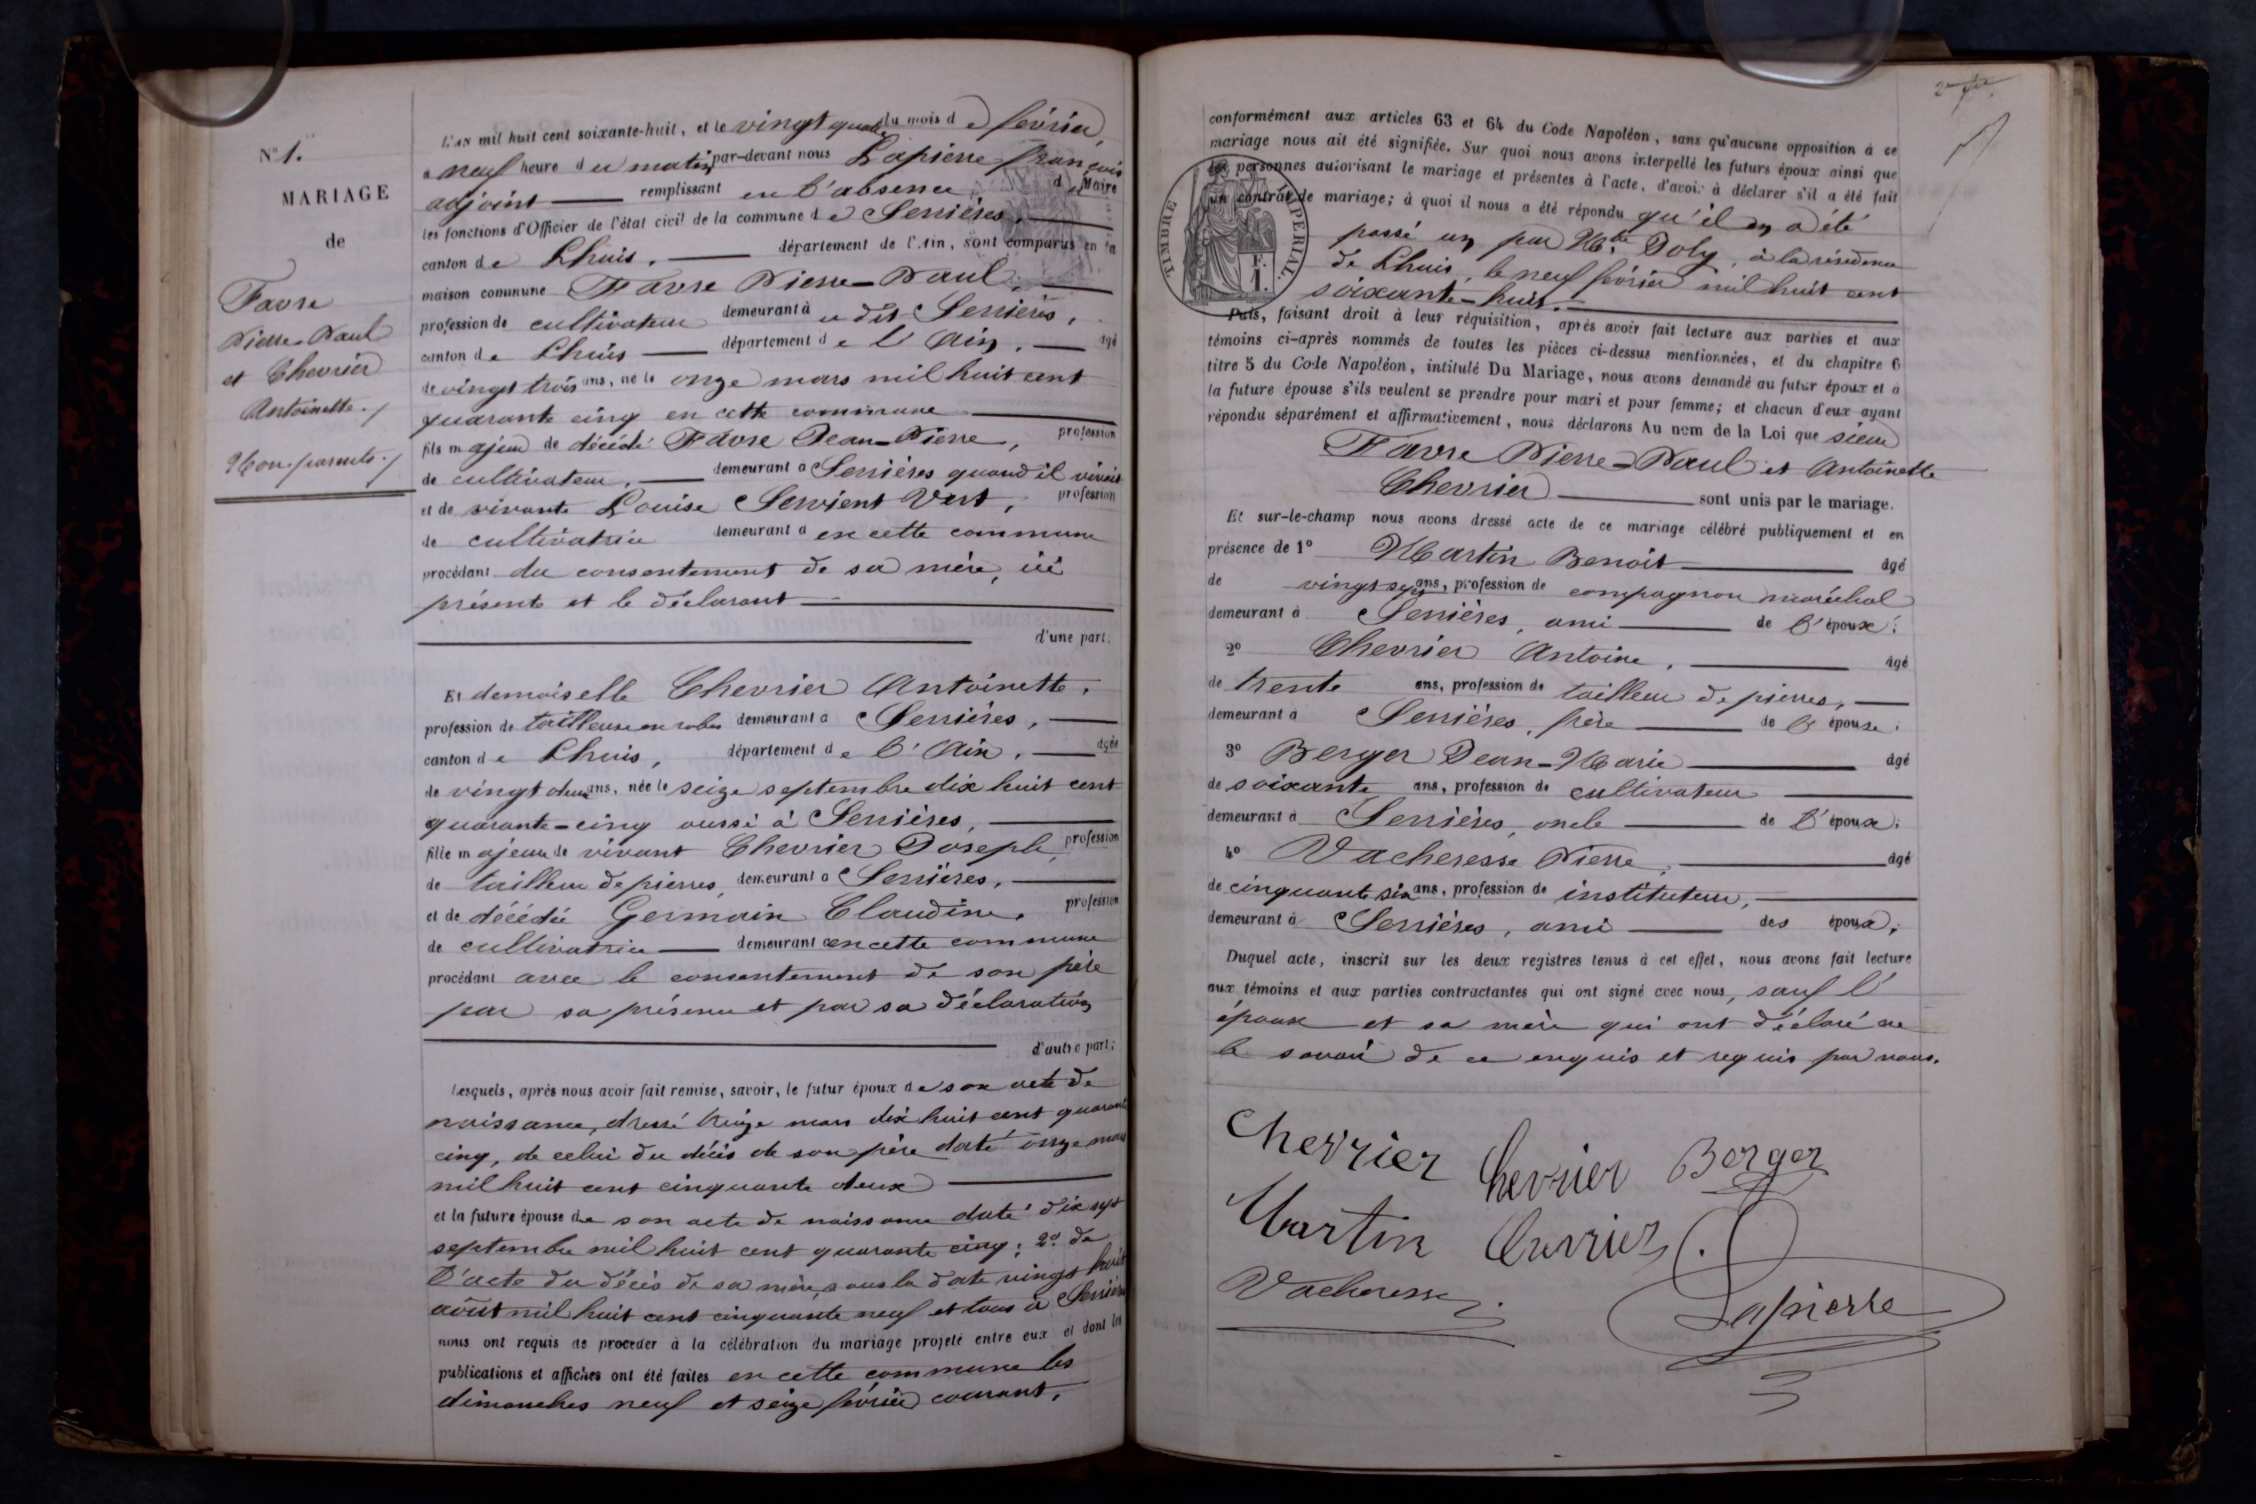 N° 1.
MARIAGE
de
Favre
Pierre-Paul
et Chevrier
Antoinette./
Non parents./
L'AN mil huit cent soixante-huit, et le vingt quatre du mois de février,
a neuf heure du matin par-devant nous Lapierre françois
adjoint remplissant en l'absence du Maire
les fonctions d'Officier de l'état civil de la commune de Serrières,
canton de Lhuis. département de l'Ain, sont comparus en la
maison commune Favre Pierre-Paul,
profession de cultivateur demeurant à u dit Serrières,
canton de Lhuis département de l'Ain. âgé
de vingt trois ans, né le onze mars mil huit cent
quarante cinq en cette commune
fils majeur de décédé Favre Jean-Pierre, profession
de cultivateur, demeurant à Serrières quand il vivait
et de vivante Louise Servient Vert, profession
de cultivatrice demeurant à en cette commune
procédant du consentement de sa mère, ici
présente et le déclarant
d'une part.
Et demoiselle Chevrier Antoinette,
profession de tailleuse en robes demeurant à Serrières,
canton de Lhuis, département de l'Ain. âgée
de vingt deux ans, née le seize septembre dix huit cent
quarante-cinq aussi à Serrières,
fille majeure de vivant Chevrier Joseph, profession
de tailleur de pierres, demeurant à Serrières,
et de décédée Germain Claudine, profession
de cultivatrice demeurant en cette commune
procédant avec le consentement de son père
par sa présence et par sa déclaration
d'autre part;
Lesquels, après nous avoir fait remise, savoir, le futur époux de son acte de
naissance, dressé treize mars dix huit cent quarante
cinq, de celui du décès de son père daté onze mars
mil huit cent cinquante deux
et la future épouse de son acte de naissance daté dix sept
septembre mil huit cent quarante cinq; 2° de
l'acte du décès de sa mère, sous la date vingt huit
août mil huit cent cinquante neuf et tous à Serrières
nous ont requis de procéder à la célébration du mariage projeté entre eux et dont les
publications et affiches ont été faites en cette commune les
dimanches neuf et seize février courant,
conformément aux articles 63 et 64 du Code Napoléon, sans qu'aucune opposition à ce
mariage nous ait été signifiée. Sur quoi nous avons interpellé les futurs époux ainsi que
les personnes autorisant le mariage et présentes à l'acte, d'avoir à déclarer s'il a été fait
un contrat de mariage; à quoi il nous a été répondu qu'il en a été
passé un par Me Joly, à la résidence
de Lhuis, le neuf février mil huit cent
soixante-huit.
TIMBRE IMPÉRIAL.
F. 1.
Puis, faisant droit à leur réquisition, après avoir fait lecture aux parties et aux
témoins ci-après nommés de toutes les pièces ci-dessus mentionnées, et du chapitre 6
titre 5 du Code Napoléon, intitulé Du Mariage, nous avons demandé au futur époux et à
la future épouse s'ils veulent se prendre pour mari et pour femme; et chacun d'eux ayant
répondu séparément et affirmativement, nous déclarons Au nom de la Loi que sieur
Favre Pierre-Paul et Antoinette
Chevrier sont unis par le mariage.
Et sur-le-champ nous avons dressé acte de ce mariage célébré publiquement et en
présence de 1° Martin Benoît âgé
de vingt ans, profession de compagnon maréchal
demeurant à Serrières, ami de l'époux;
2° Chevrier Antoine, âgé
de trente ans, profession de tailleur de pierres,
demeurant à Serrières, frère de l'épouse;
3° Berger Jean-Marie âgé
de soixante ans, profession de cultivateur
demeurant à Serrières, oncle de l'époux;
4° Vacheresse Pierre, âgé
de cinquante six ans, profession de instituteur,
demeurant à Serrières, ami des époux;
Duquel acte, inscrit sur les deux registres tenus à cet effet, nous avons fait lecture
aux témoins et aux parties contractantes qui ont signé avec nous, sauf l'
époux et sa mère qui ont déclaré ne
le savoir de ce enquis et requis par nous.
Chevrier Chevrier Berger
Martin Chevrier
Vacheresse Lapierre